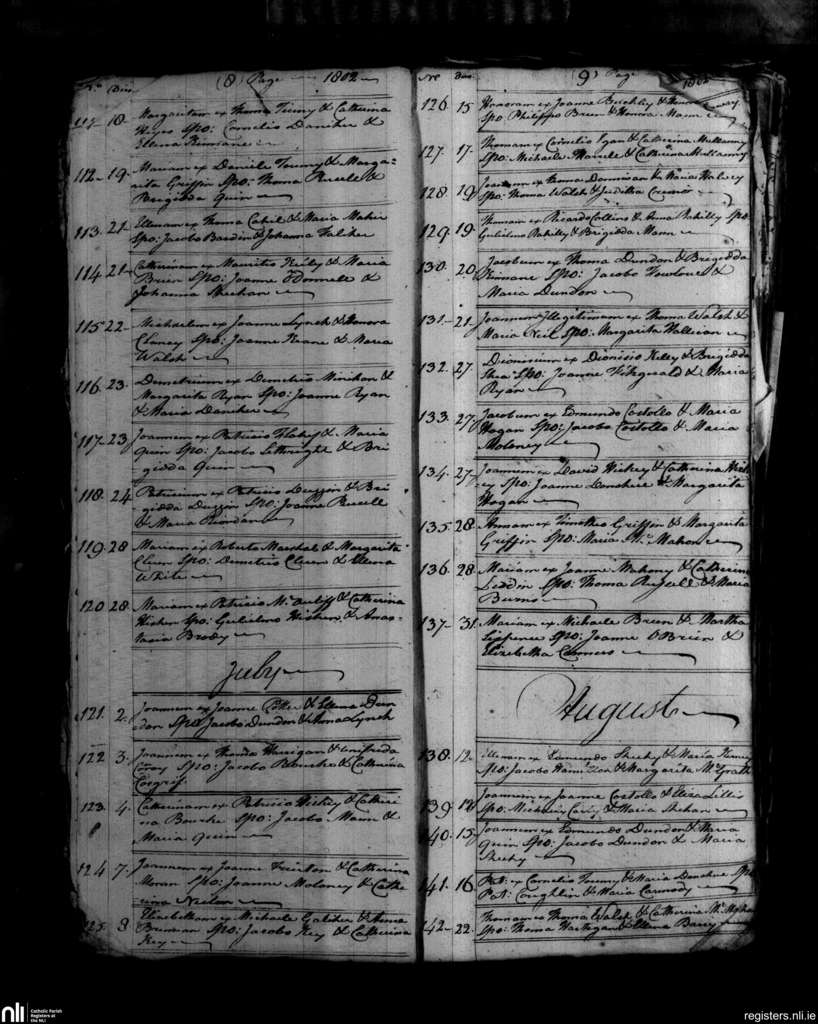 No Dies (8) Page 1802
111 18. Margaritam ex Thoma Tunny & Catherina
Hayes Spo: Cornelio Daniher &
Elena Kinnane
112 19. Mariam ex Daniele Tunny & Marga-
rita Griffin Spo: Thoma Russell &
Brigidda Quin
113. 21. Ellenam ex Thoma Cahil & Maria Maher
Spo: Jacobo & Johanna Faliher
114 21 Catherinam ex Mauritio Kiely & Maria
Brien Spo: Joanne O'Donnell &
Johanna Sheehan
115 22 Michaelem ex Joanne Lynch & Honora
Clancy Spo: Joanne Keane & Maria
Walsh
116. 23. Demetrium ex Demetrio Minihan &
Margarita Ryan Spo: Joanne Ryan
& Maria Daniher
117. 23 Joannem ex Patricio & Maria
Quin Spo: Jacobo & Bri-
gidda Quin
118. 24. Patricium ex Patricio & Bri-
gidda Spo: Joanne Russell
& Maria Riordan
119 28 Mariam ex Roberto Marshal & Margarita
Spo: Demetrio & Elena
White
120 28. Mariam ex Patricio McAuliff & Catherina
Hishen Spo: Gulielmo Hishen & Anas-
tacia Brody
July
121. 2. Joannem ex Joanne & Ellena Dun-
don Spo: Jacobo Dundon & Anna Lynch
122 3. Joannem ex Thoma Harrigan & Unifreda
Spo: Jacobo Bourke & Catherina
Cosgrif
123. 4. Catherinam ex Patricio Hickey & Catheri
na Bourke Spo: Jacobo Mann &
Maria Quin
124 7. Joannem ex Joanne & Catherina
Moran Spo: Joanne Moloney & Cathe
rina
125. 8 Elizabetham ex Michaele & Anna
Brennan Spo: Jacobo Key & Catherina
Key
No Dies (9) Page 1802
126 15 Honoram ex Joanne Buckley & Honora
Spo Philippo Brien & Honora Mann
127. 17. Thomam ex Cornelio Egan & Catherina Mullawny
Spo: Michaele & Catherina Mullawny
128 19 Joannem ex Thoma & Maria Halvey
Spo: Thoma Walsh & Juditha Connor
129. 19. Thomam ex Ricardo Collins & Anna Rahilly Spo
Gulielmo Rahilly & Brigidda Mann
130. 20. Jacobum ex Thoma Dundon & Brigidda
Kinnane Spo: Jacobo &
Maria Dundon
131. 21. Joannem Illegitimum ex Thoma Walsh &
Maria Neil Spo: Margarita
132. 27. Dionisium ex Dionisio Kelly & Brigidda
Shea Spo: Joanne Fitzgerald & Maria
Ryan
133. 27 Jacobum ex Edmundo Costollo & Maria
Hogan Spo: Jacobo Costollo & Maria
Moloney
134. 27 Joannem ex David Hickey & Catherina Hick
ey Spo: Joanne Donohue & Margarita
Hogan
135. 28. Annam ex Timotheo Griffin & Margarita
Griffin Spo: Maria McMahon
136. 28. Mariam ex Joanne Mahony & Catherina
Liddin Spo: Thoma & Maria
Burns
137. 31. Mariam ex Michaele Brien & Martha
Sixpence Spo: Joanne OBrien &
Elizabetha Conners
August
138. 12. Ellenam ex Edmundo Sheehy & Maria
Spo: Jacobo Hamilton & Margarita McGrath
139 12 Joannem ex Joanne Costollo & Eliza Lillis
Spo: Michaele & Maria
140. 15. Joannem ex Edmundo Dundon & Maria
Quin Spo: Jacobo Dundon & Maria
Sheehy
141. 16. Pat: ex Cornelio Tunny & Maria Donohue Spo
Pat: Coughlin & Maria Carmody
142 22. Thomam ex Thoma Walsh & Catherina
Spo: Thoma Hartigan & Ellena Barry
nli Catholic Parish
Registers at
the NLI
registers.nli.ie